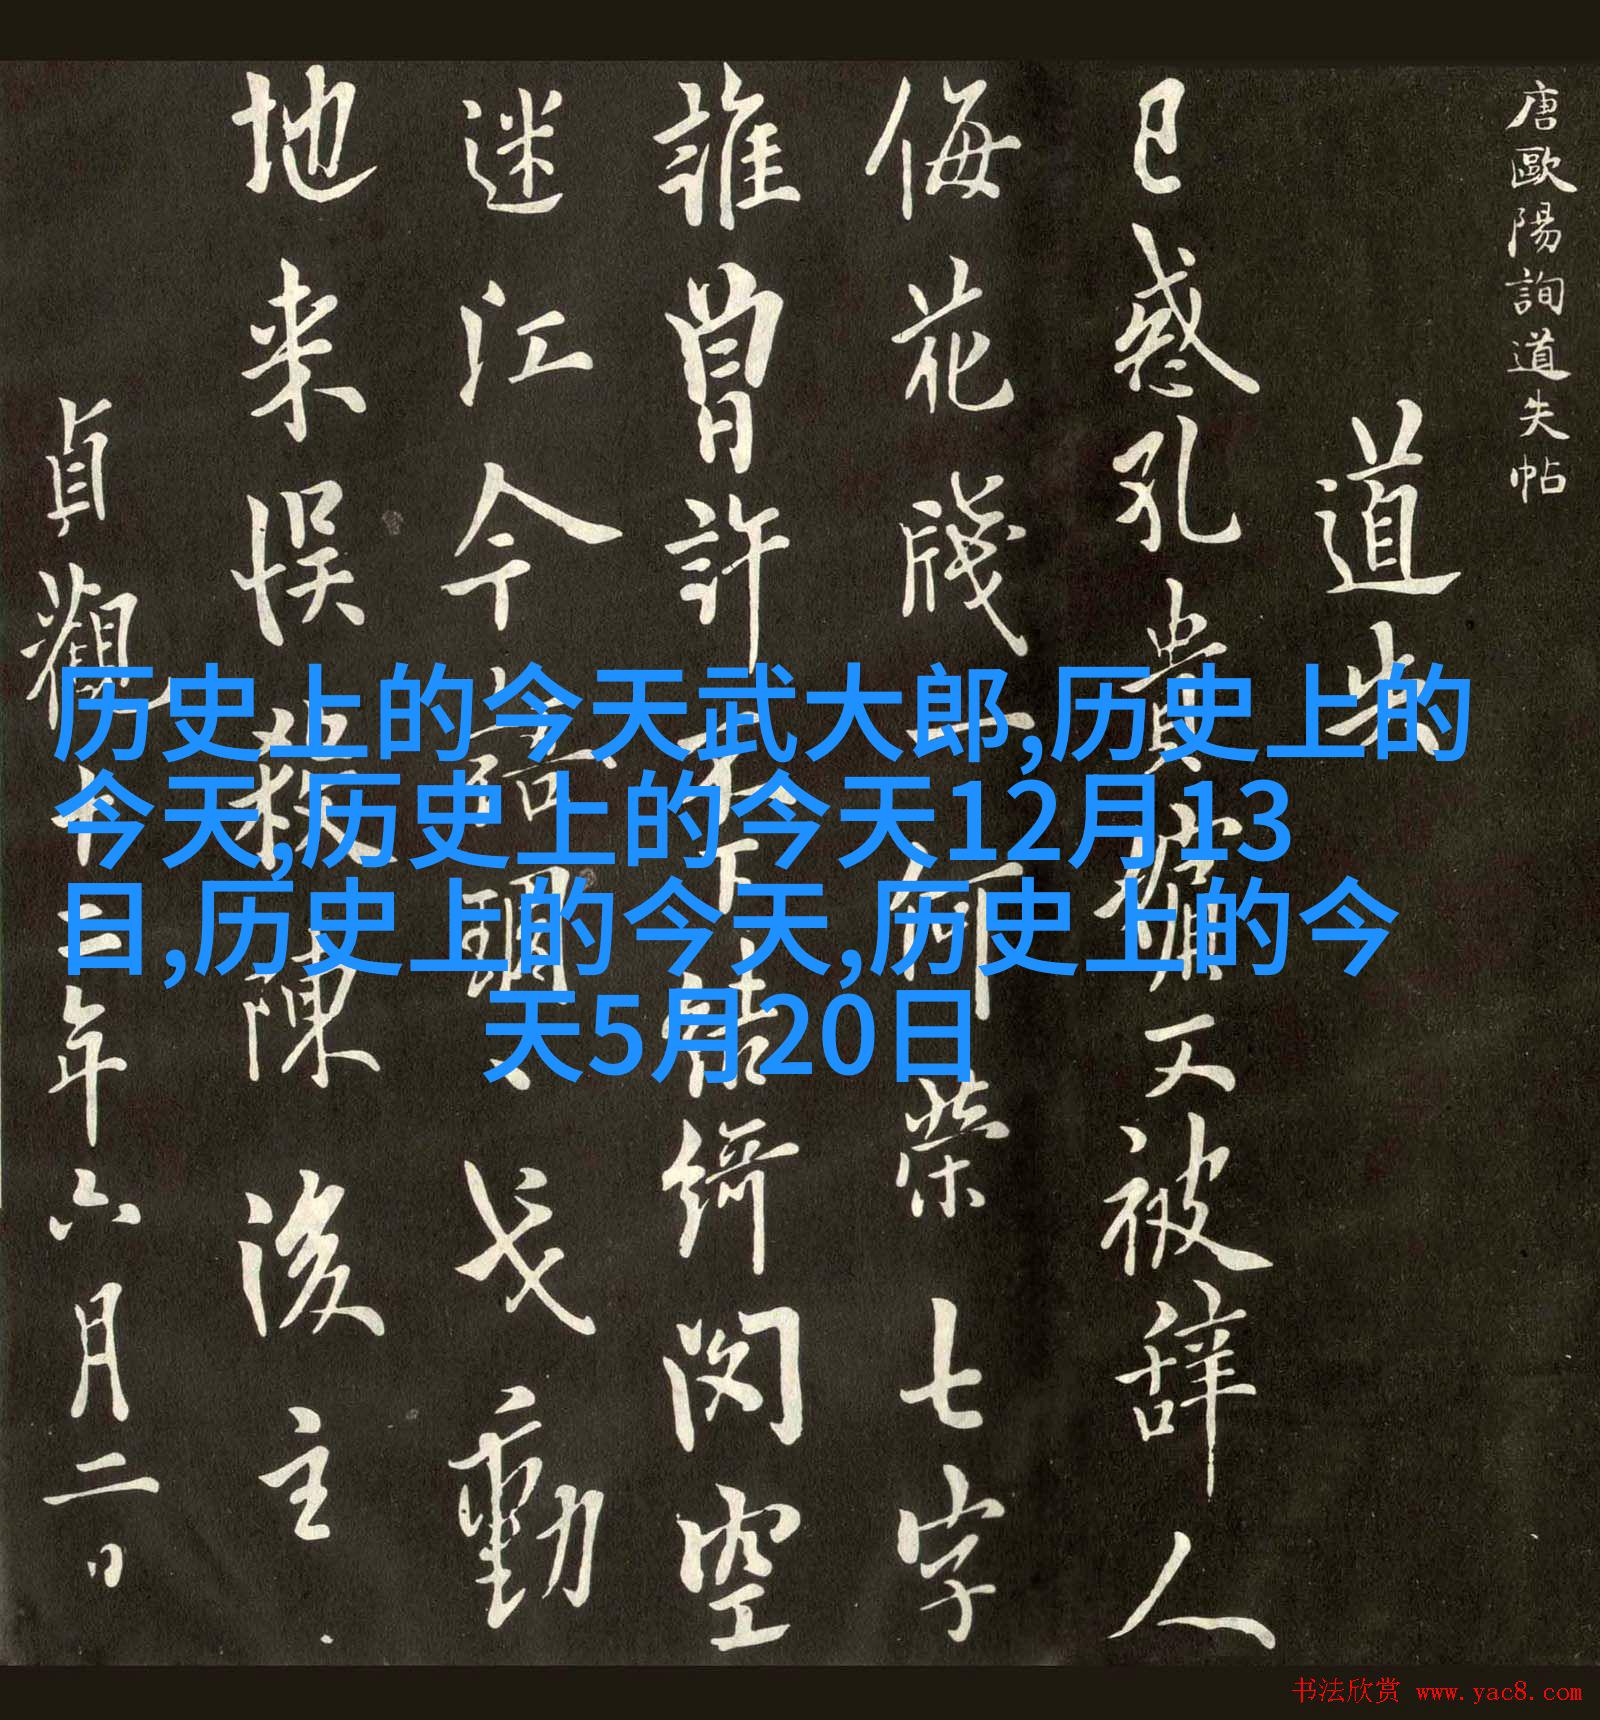 唐歐陽詢道失帖
道失
已惑孔貴嬪又被辭人
侮花牋一何榮七字
誰曾許不下結綺閣空
迷江令 戈動
地来悮殺陳後主
貞觀十二年六月二日
历史上的今天武大郎,历史上的
今天,历史上的今天12月13
日,历史上的今天,历史上的今
天5月20日
书法欣赏 www.yac8.com